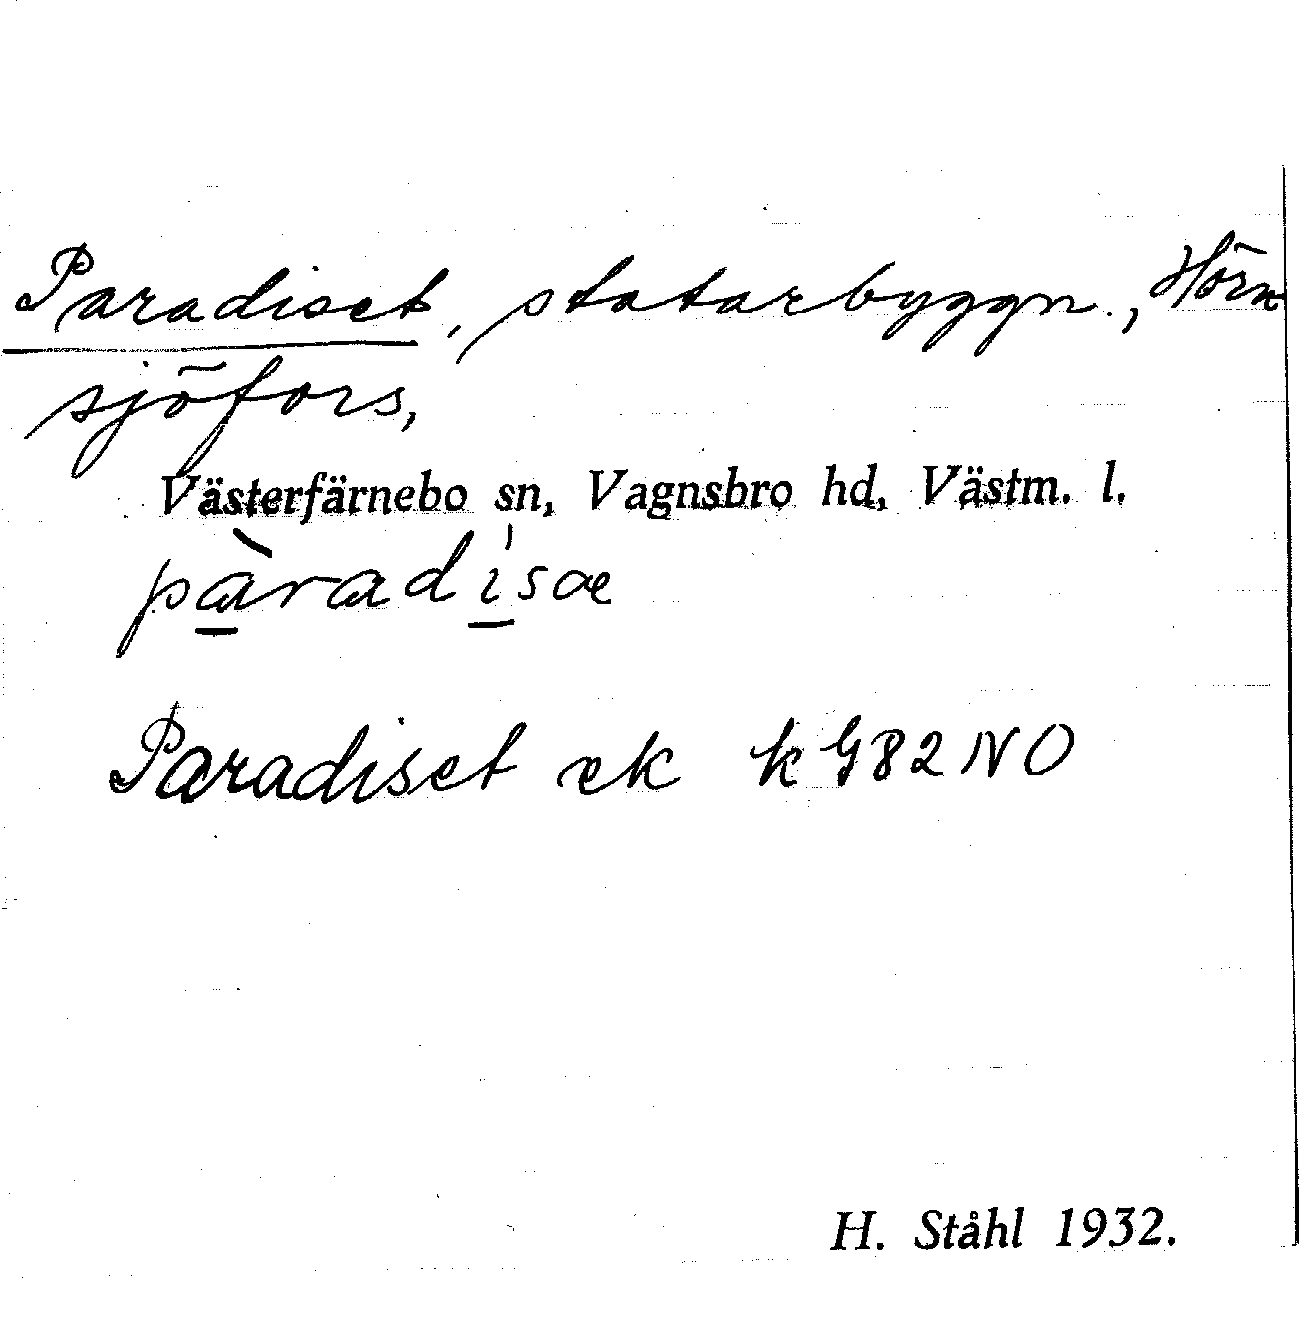 Paradiset, statarbyggn., Hörn
sjöfors,
Västerfärnebo sn, Vagnsbro hd, Västm. l.
pàradísæ
Paradiset ek k G82NO
H. Ståhl 1932.